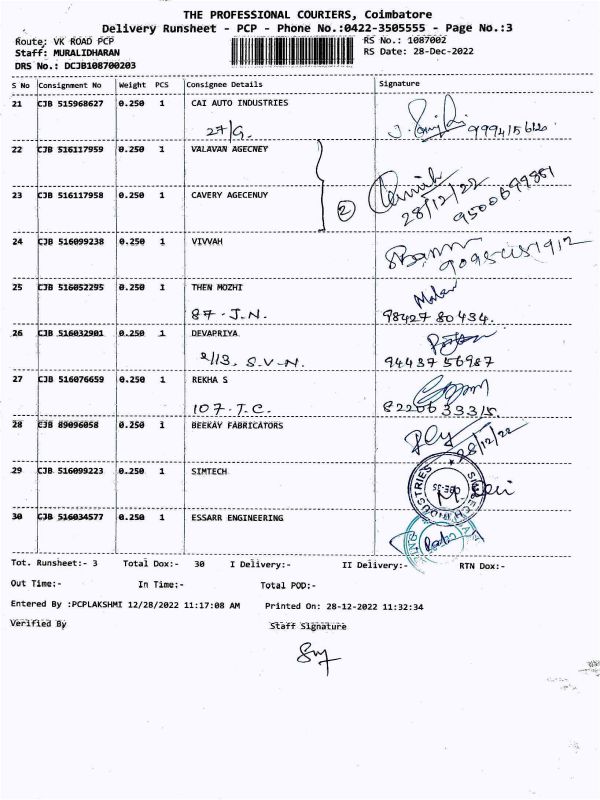 THE PROFESSIONAL COURIERS, Coimbatore
Delivery Runsheet - PCP - Phone No.:0422-3505555 - Page No.:3
Route: VK ROAD PCP RS No.: 1087002
Staff: MURALIDHARAN RS Date: 28-Dec-2022
DRS No.: DCJB108700203
S No Consignment No Weight PCS Consignee Details Signature
21 CJB 515968627 0.250 1 CAI AUTO INDUSTRIES
27/G.
22 CJB 516117959 0.250 1 VALAVAN AGECNEY
23 CJB 516117958 0.250 1 CAVERY AGECENUY
2 28/12/22
24 CJB 516099238 0.250 1 VIVVAH
25 CJB 516052295 0.250 1 THEN MOZHI
87 - J.N. 98427 80434.
26 CJB 516032901 0.250 1 DEVAPRIYA
2/13, S.V.N. 94437 56987
27 CJB 516076659 0.250 1 REKHA S
107 - T.C. 8220633315
28 CJB 89096058 0.250 1 BEEKAY FABRICATORS
28/12/22
29 CJB 516099223 0.250 1 SIMTECH
30 CJB 516034577 0.250 1 ESSARR ENGINEERING
Tot. Runsheet:- 3 Total Dox:- 30 I Delivery:- II Delivery:- RTN Dox:-
Out Time:- In Time:- Total POD:-
Entered By :PCPLAKSHMI 12/28/2022 11:17:08 AM Printed On: 28-12-2022 11:32:34
Verified By Staff Signature